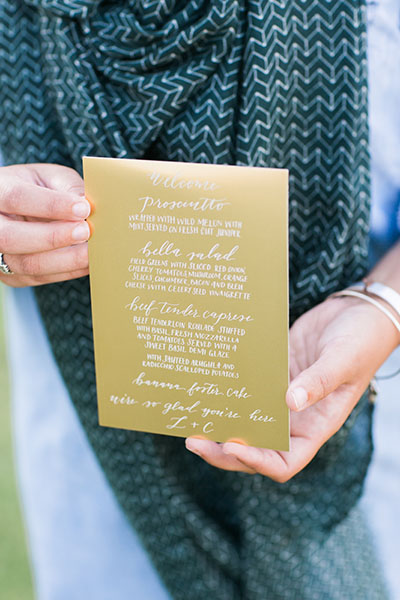 Welcome
Prosciutto
WRAPPED WITH WILD MELON WITH
MINT, SERVED ON FRESH CUT JUNIPER
bella salad
FIELD GREENS WITH SLICED RED ONION
CHERRY TOMATOES, MUSHROOM, ORANGE
SLICES, CUCUMBER, BACON AND BLUE
CHEESE WITH CELERY SEED VINAIGRETTE
beef tender caprese
BEEF TENDERLOIN ROULADE STUFFED
WITH BASIL, FRESH MOZZARELLA
AND TOMATOES SERVED WITH A
SWEET BASIL DEMI GLAZE
WITH SAUTEED ARUGULA AND
RADICCHIO SCALLOPED POTATOES
banana foster cake
we're so glad you're here
L + C